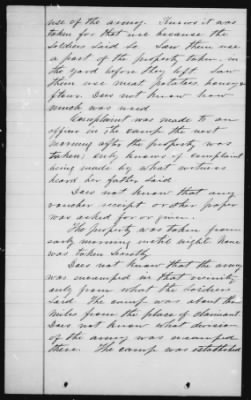 use of the army. Knows it was
taken for that use because the
soldiers said so. Saw them use
a part of the property taken, in
the yard before they left. Saw
them use meat, potatoes honey &
flour. Does not know how
much was used
Complaint was made to an
officer in the camp the next
morning after the property was
taken; only knows of complaint
being made by what witness
heard her father said
Does not know that any
voucher receipt or other paper
was asked for or given.
The property was taken from
early morning until night. None
was taken secretly
Does not know that the army
was encamped in that vicinity
only from what the soldiers
said. The camp was about two
miles from the place of claimant
Does not know what division
of the army was encamped
there. The camp was established